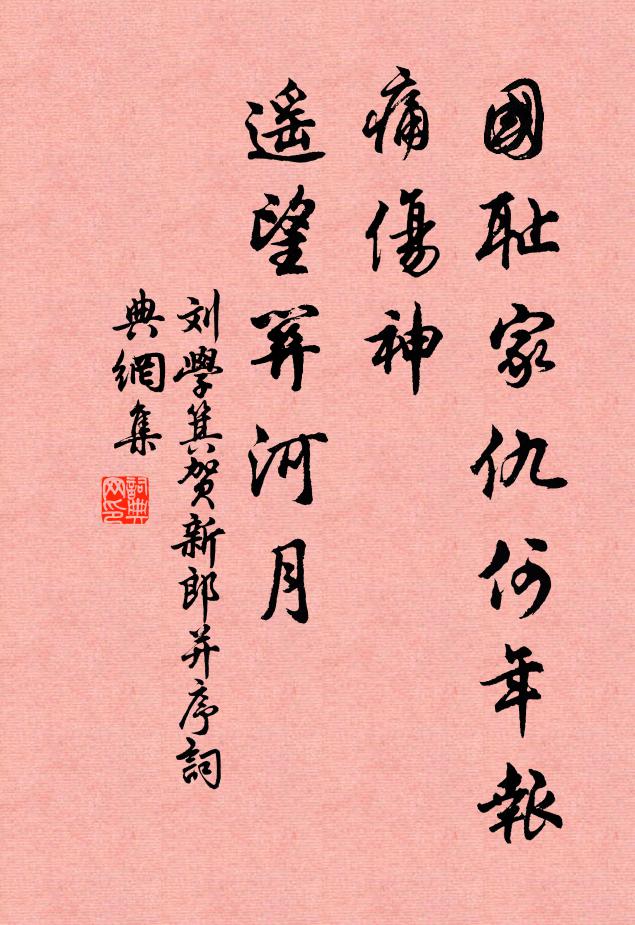 國耻家仇何年報
痛傷神
遥望关河月
刘學箕賀新郎并序詞
典網集
詞典
网印